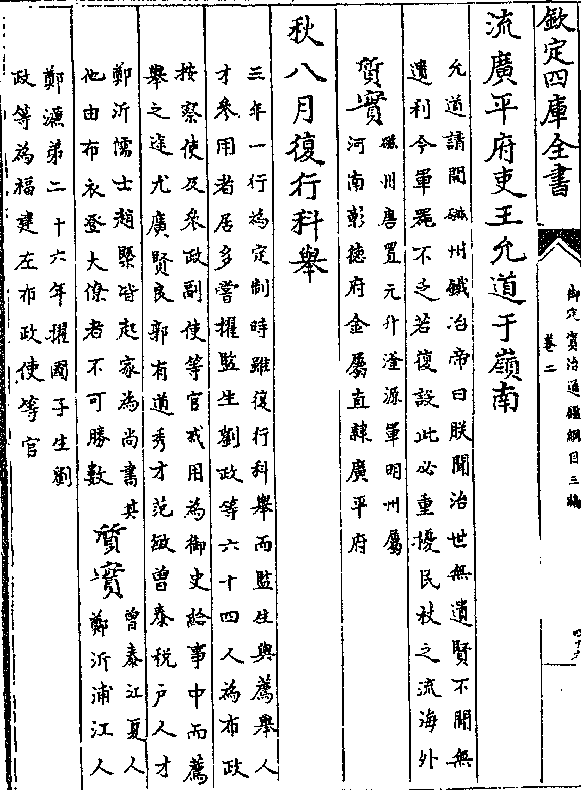 欽定四庫全書
御定資治通鑑綱目三編
卷二
流廣平府吏王允道于嶺南
允道請開磁州鐵冶帝曰朕聞治世無遺賢不聞無
遺利今軍器不乏若復設此必重擾民杖之流海外
質實
磁州唐置元升澄源軍明州屬
河南彰徳府金屬直隸廣平府
秋八月復行科舉
三年一行為定制時雖復行科舉而監生與薦舉人
才參用者居多嘗擢監生劉政等六十四人為布政
按察使及參政副使等官或用為御史給事中而薦
舉之途尤廣賢良郭有道秀才范敏曾泰税戸人才
鄭沂儒士趙翥皆起家為尚書其
他由布衣登大僚者不可勝數
質實
曾泰江夏人
鄭沂浦江人
鄭濂弟二十六年擢國子生劉
政等為福建左布政使等官